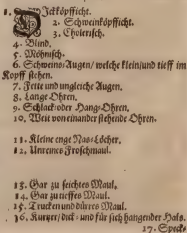 1. Dickköpfficht.
2. Schweinköpfficht.
3. Cholerisch.
4. Blind.
5. Mönnisch.
6. Schweins-Augen/ welche klein/und tieff im
Kopff stehen.
7. Fette und ungleiche Augen.
8. Lange Ohren.
9. Schlack-oder Hang-Ohren.
10. Weit voneinander stehende Ohren.
11. Kleine enge Nas-Löcher.
12. Unreines Froschmaul.
13. Gar zu seichtes Maul.
14. Gar zu tieffes Maul.
15. Trucken und dürres Maul.
16. Kurtzer/dick-und für sich hangender Hals.
17. Speck-